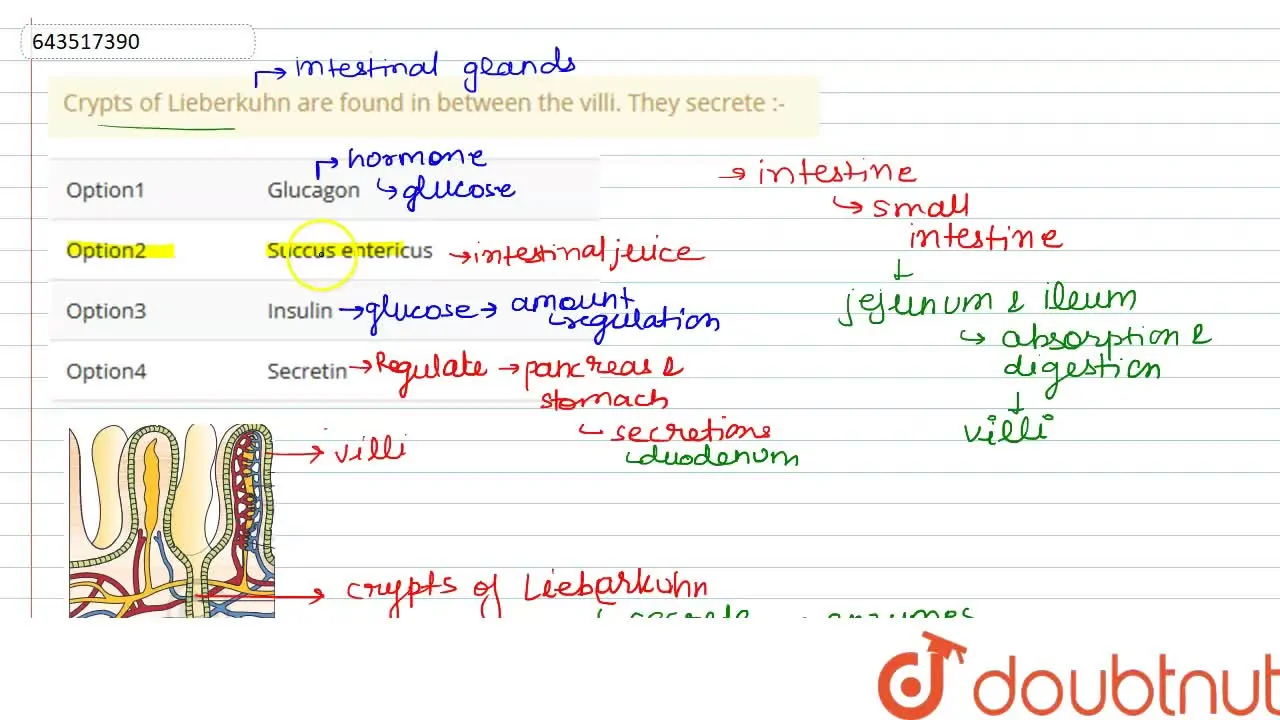 643517390
intestinal glands
Crypts of Lieberkuhn are found in between the villi. They secrete :-
hormone
Option1 Glucagon glucose
Option2 Succus entericus intestinal juice
Option3 Insulin glucose amount
regulation
Option4 Secretin Regulate pancreas &
stomach
secretions
duodenum
intestine
small
intestine
jejunum & ileum
absorption &
digestion
villi
villi
crypts of Lieberkuhn
secrete enzymes
doubtnut